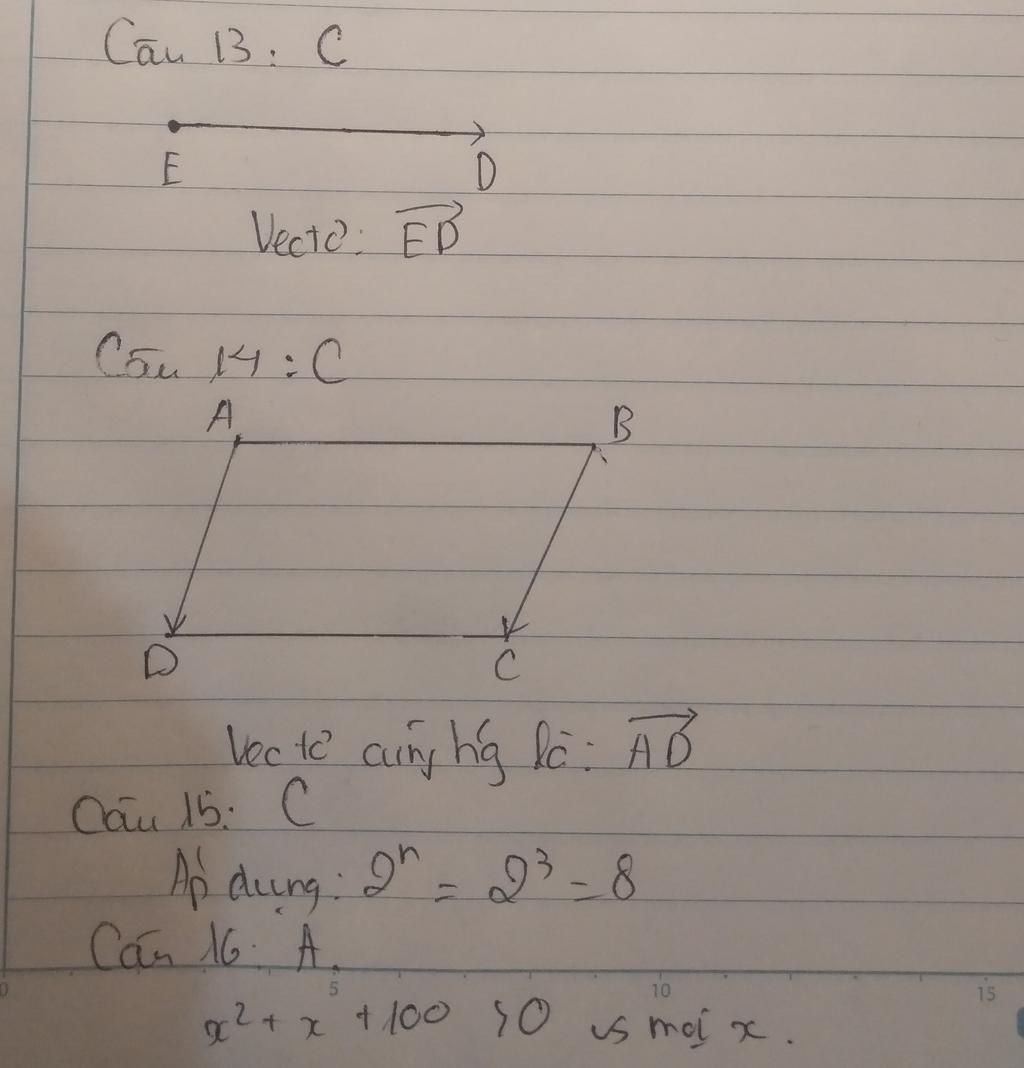 Câu 13: C
E D
Vectơ: ED
Câu 14: C
A B
D C
Vectơ cùng hg là: AD
Câu 15: C
Áp dụng: 2ⁿ = 2³ = 8
Câu 16: A.
0 5 10 15
x² + x + 100 > 0 vs mọi x.